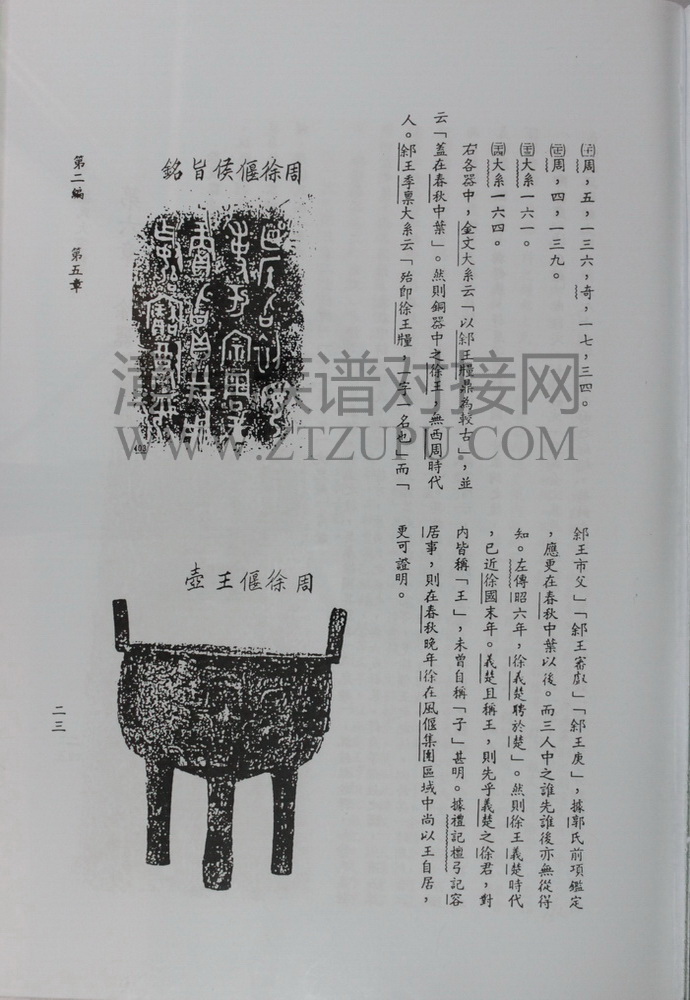 ㊄周，五，一三六，奇，一七，三四。
周，四，一三九。
大系一六一。
大系一六四。
右各器中，金文大系云「以䣄王糧鼎為較古」，並
云「蓋在春秋中葉」。然則銅器中之徐王，無西周時代
人。䣄王季稟大系云「殆即徐王糧，一字一名也」而「
䣄王市父」「䣄王」「䣄王庚」，據郭氏前項鑑定
，應更在春秋中葉以後。而三人中之誰先誰後亦無從得
知。左傳昭六年，徐義楚聘於楚」。然則徐王義楚時代
，已近徐國末年。義楚且稱王，則先乎義楚之徐君，對
內皆稱「王」，未曾自稱「子」甚明。據禮記檀弓記容
居事，則在春秋晚年徐在風偃集團區域中尚以王自居，
更可證明。
周徐偃侯旨銘
403
周徐偃王壺
第二編　第五章
二三
漳州族谱对接网
WWW.ZTZUPU.COM